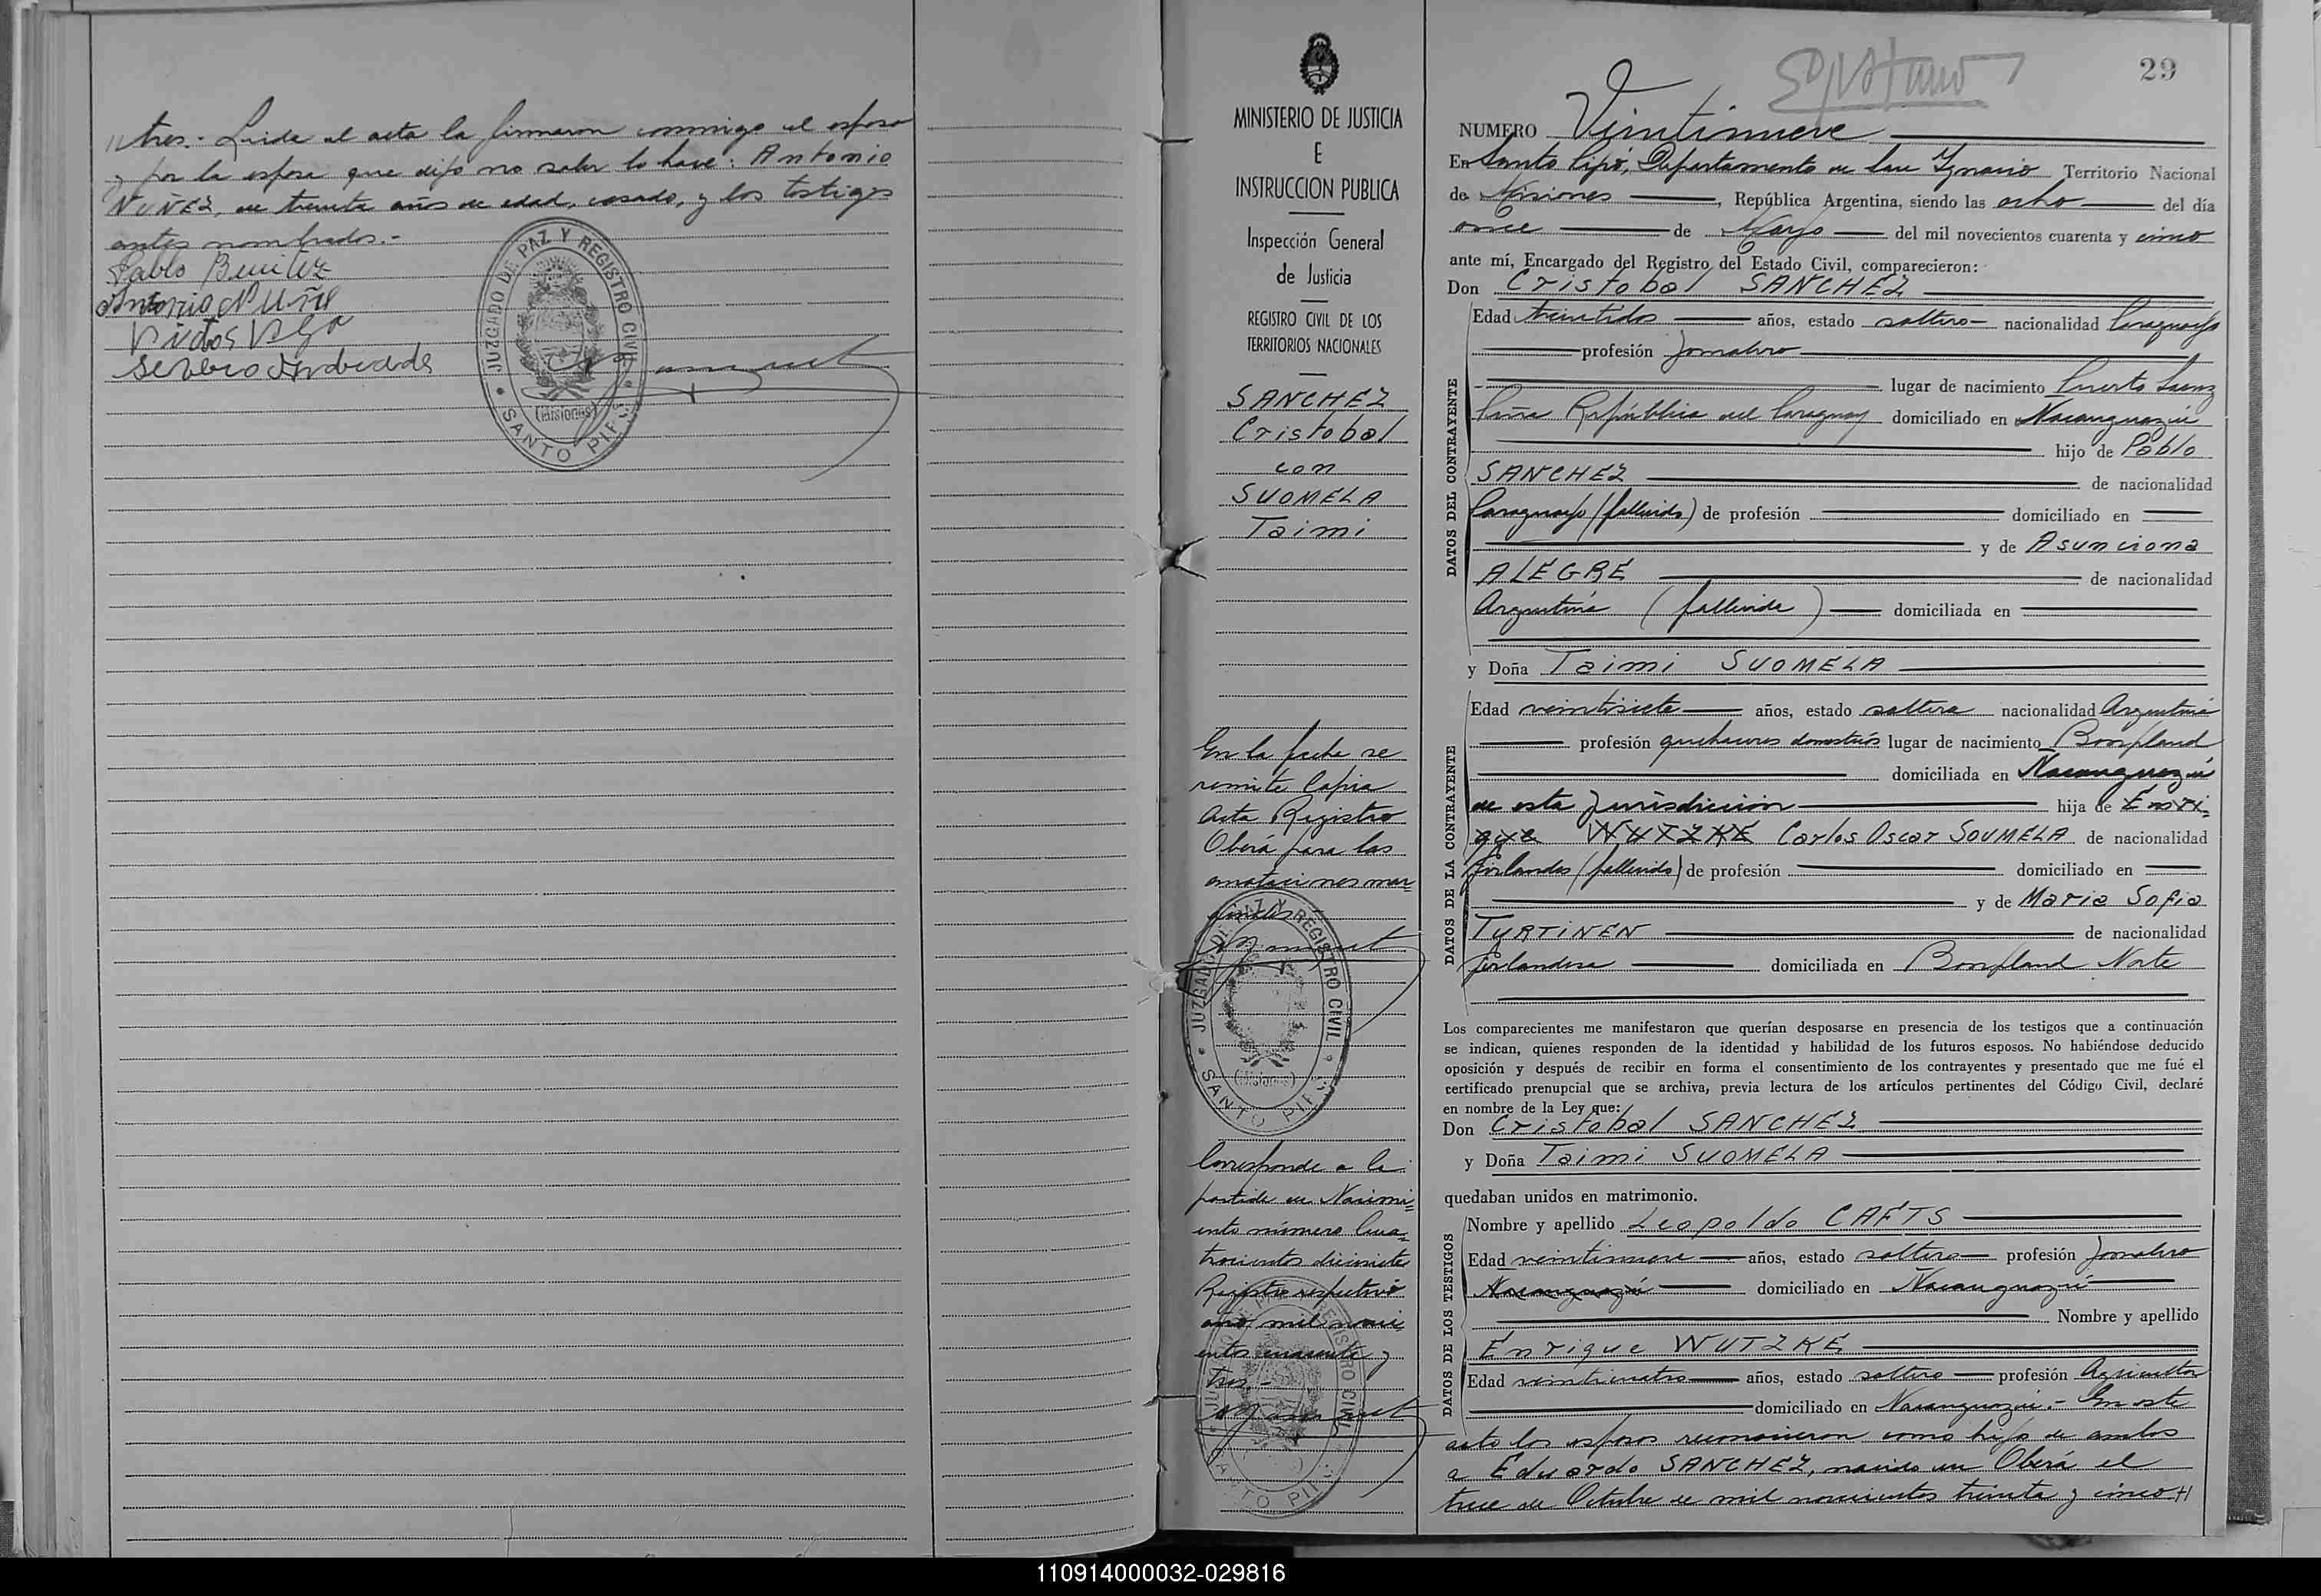 tres.- Leida el acta la firmaron conmigo el esposo
y por la esposa que dijo no saber lo hace: Antonio
NUÑEZ, de treinta años de edad, casado, y los testigos
antes nombrados.-
Pablo Benitez
Antonio Nuñe
Severo Andrade
JUZGADO DE PAZ Y REGISTRO CIVIL
(Misiones)
SANTO PIPÓ
MINISTERIO DE JUSTICIA
E
INSTRUCCION PUBLICA
Inspección General
de Justicia
REGISTRO CIVIL DE LOS
TERRITORIOS NACIONALES
SANCHEZ
Cristobal
con
SUOMELA
Taimi
En la fecha se
remite Copia
Acta Registro
Oberá para las
anotaciones mar
ginales
JUZGADO DE PAZ Y REGISTRO CIVIL
(Misiones)
SANTO PIPÓ
Corresponde a la
partida de Nacimi=
ento número Cua=
trocientos diecisiete
Registro respectivo
año mil novi
entos cuarenta y
tres.-
29
NUMERO Veintinueve
En Santo Pipó, Departamento de San Ignacio Territorio Nacional
de Misiones, República Argentina, siendo las ocho del día
once de Mayo del mil novecientos cuarenta y cinco
ante mí, Encargado del Registro del Estado Civil, comparecieron:
Don Cristobal SANCHEZ
DATOS DEL CONTRAYENTE
Edad treintidos años, estado soltero nacionalidad Paraguayo
profesión Jornalero
lugar de nacimiento Puerto Saenz
Peña República del Paraguay domiciliado en Ñacanguazú
hijo de Pablo
SANCHEZ de nacionalidad
Paraguayo (fallecido) de profesión domiciliado en
y de Asunciona
ALEGRE de nacionalidad
Argentina (fallecida) domiciliada en
y Doña Taimi SUOMELA
DATOS DE LA CONTRAYENTE
Edad veintisiete años, estado soltera nacionalidad Argentina
profesión quehaceres domesticos lugar de nacimiento Bonpland
domiciliada en Ñacanguazú
de esta Jurisdicción hija de Enri=
que WUTZKE Carlos Oscar SOUMELA de nacionalidad
finlandes (fallecido) de profesión domiciliado en
y de Maria Sofia
TYRTINEN de nacionalidad
finlandesa domiciliada en Bonpland Norte
Los comparecientes me manifestaron que querían desposarse en presencia de los testigos que a continuación
se indican, quienes responden de la identidad y habilidad de los futuros esposos. No habiéndose deducido
oposición y después de recibir en forma el consentimiento de los contrayentes y presentado que me fué el
certificado prenupcial que se archiva, previa lectura de los artículos pertinentes del Código Civil, declaré
en nombre de la Ley que:
Don Cristobal SANCHEZ
y Doña Taimi SUOMELA
quedaban unidos en matrimonio.
DATOS DE LOS TESTIGOS
Nombre y apellido Leopoldo CAFTS
Edad veintinueve años, estado soltero profesión Jornalero
Ñacanguazú domiciliado en Ñacanguazú
Nombre y apellido
Enrique WUTZKE
Edad veinticuatro años, estado soltero profesión Agricultor
domiciliado en Ñacanguazú.- En este
acto los esposos reconocieron como hijo de ambos
a Eduardo SANCHEZ, nacido en Oberá el
trece de Octubre de mil novecientos treinta y cinco
110914000032-029816